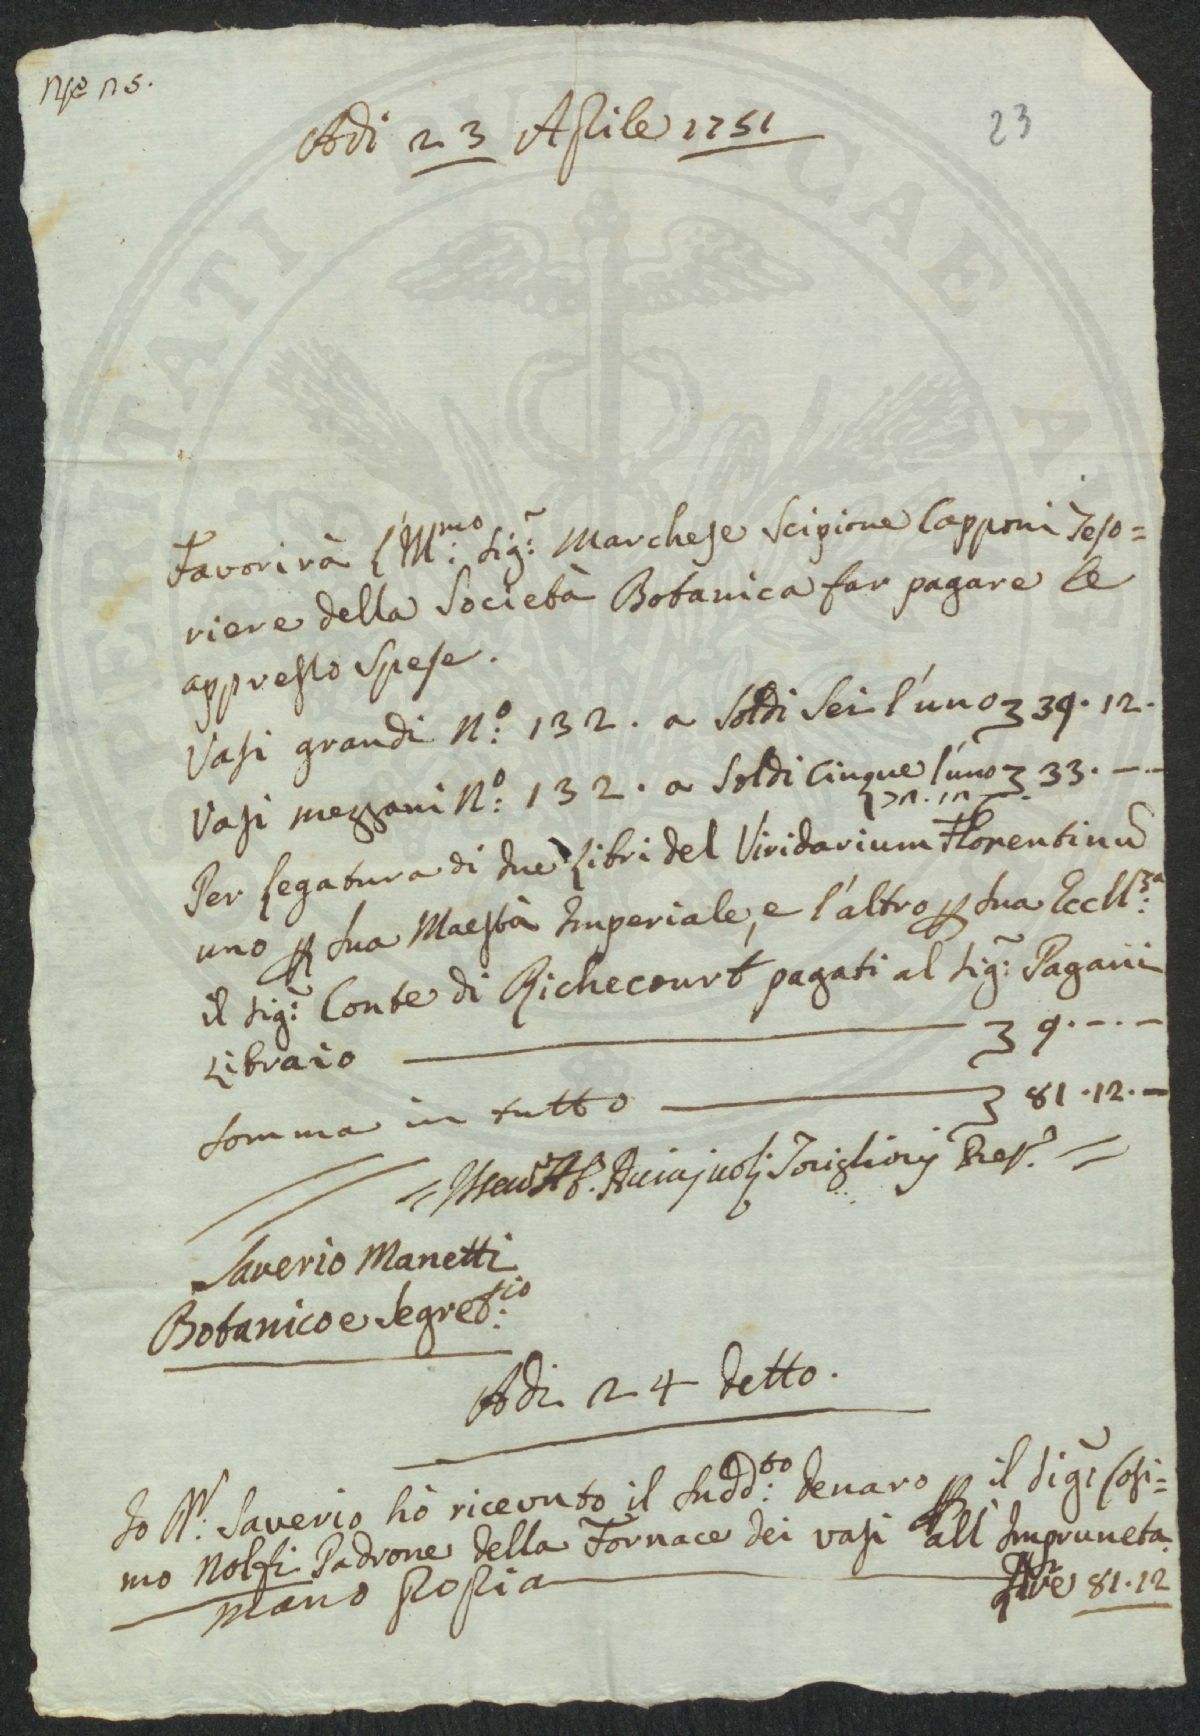 Adi 23 Aprile 1751
23
Favorirà l'Ill:mo Sig:r Marchese Scipione Capponi Teso=
riere della Società Botanica far pagare le
appresso Spese.
Vasi grandi N:o 132. a Soldi Sei l'uno 39.12.
Vasi mezzani N:o 132. a Soldi Cinque l'uno 33.--
Per Legatura di due Libri del Viridarium Florentinũ
uno p Sua Maestà Imperiale, e l'altro p Sua Eccll:za
il Sig:r Conte di Richecourt pagati al Sig:r Pagani
Libraio 9.--
Somma in tutto 81.12.-
Acciajuoli
Saverio Manetti
Botanico e Segret:rio
Adi 24 detto.
Io Saverio hò ricevuto il Sudd:to denaro p il Sig:r Cosi=
mo Nolfi Padrone della Fornace dei vasi all'Impruneta
mano propia Lire 81.12